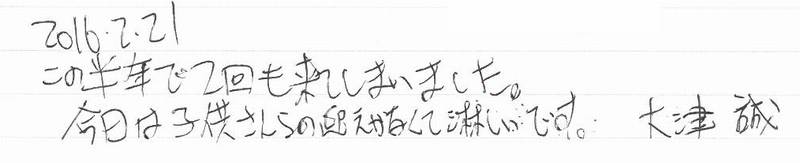 2016.2.21
この半年で2回も来てしまいました。
今日は子供さんらの迎えがなくて淋しいです。 大津 誠